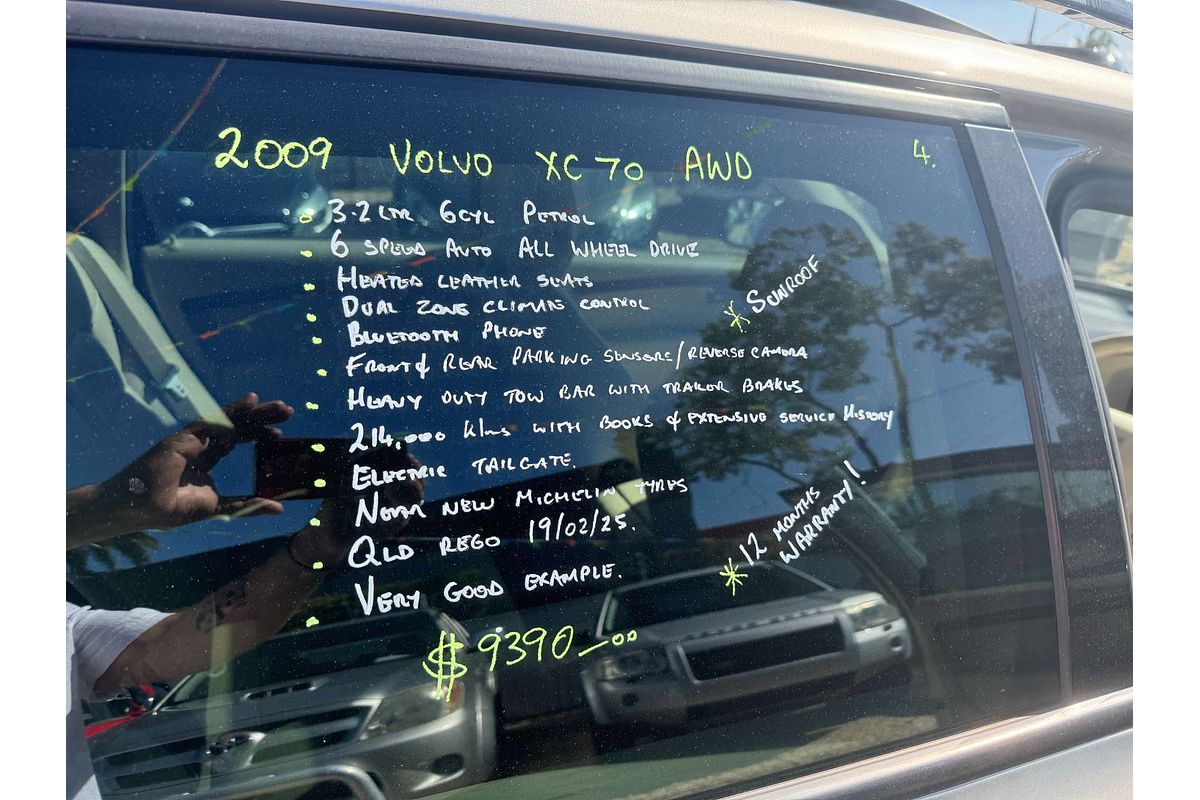 2009 VOLVO XC70 AWD 4.
3.2 LTR 6CYL PETROL
6 SPEED AUTO ALL WHEEL DRIVE
HEATED LEATHER SEATS
DUAL ZONE CLIMATE CONTROL
* SUNROOF
BLUETOOTH PHONE
FRONT & REAR PARKING SENSORS/REVERSE CAMERA
HEAVY DUTY TOW BAR WITH TRAILER BRAKES
214,000 klms WITH BOOKS & EXTENSIVE SERVICE HISTORY
ELECTRIC TAILGATE.
NEAR NEW MICHELIN TYRES
QLD REGO 19/02/25.
* 12 MONTHS
WARRANTY!
VERY GOOD EXAMPLE.
$9390-00